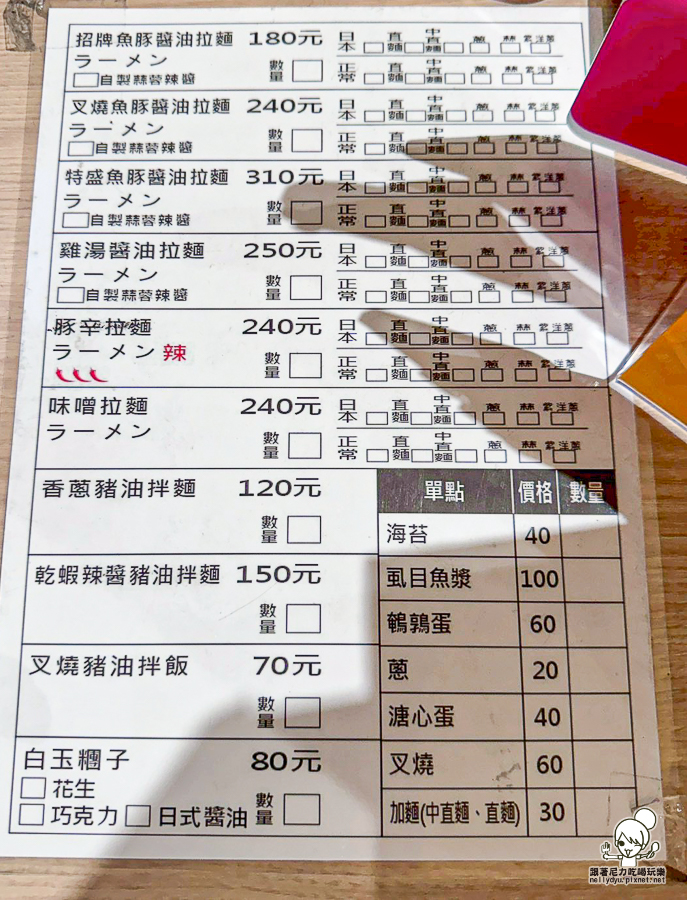 招牌魚豚醬油拉麵 180元
ラーメン
自製蒜蓉辣醬 數量
日本 直麵 中直麵 蔥 蒜 紫洋蔥
正常 直麵 中直麵 蔥 蒜 紫洋蔥
叉燒魚豚醬油拉麵 240元
ラーメン
自製蒜蓉辣醬 數量
日本 直麵 中直麵 蔥 蒜 紫洋蔥
正常 直麵 中直麵 蔥 蒜 紫洋蔥
特盛魚豚醬油拉麵 310元
ラーメン
自製蒜蓉辣醬 數量
日本 直麵 中直麵 蔥 蒜 紫洋蔥
正常 直麵 中直麵 蔥 蒜 紫洋蔥
雞湯醬油拉麵 250元
ラーメン
自製蒜蓉辣醬 數量
日本 直麵 中直麵 蔥 蒜 紫洋蔥
正常 直麵 中直麵 蔥 蒜 紫洋蔥
豚辛拉麵 240元
ラーメン 辣
數量
日本 直麵 中直麵 蔥 蒜 紫洋蔥
正常 直麵 中直麵 蔥 蒜 紫洋蔥
味噌拉麵 240元
ラーメン
數量
日本 直麵 中直麵 蔥 蒜 紫洋蔥
正常 直麵 中直麵 蔥 蒜 紫洋蔥
香蔥豬油拌麵 120元
數量
乾蝦辣醬豬油拌麵 150元
數量
叉燒豬油拌飯 70元
數量
白玉糰子 80元
花生
巧克力 日式醬油 數量
單點 價格 數量
海苔 40
虱目魚漿 100
鵪鶉蛋 60
蔥 20
溏心蛋 40
叉燒 60
加麵(中直麵、直麵) 30
跟著尼力吃喝玩樂
nellydyu.pixnet.net